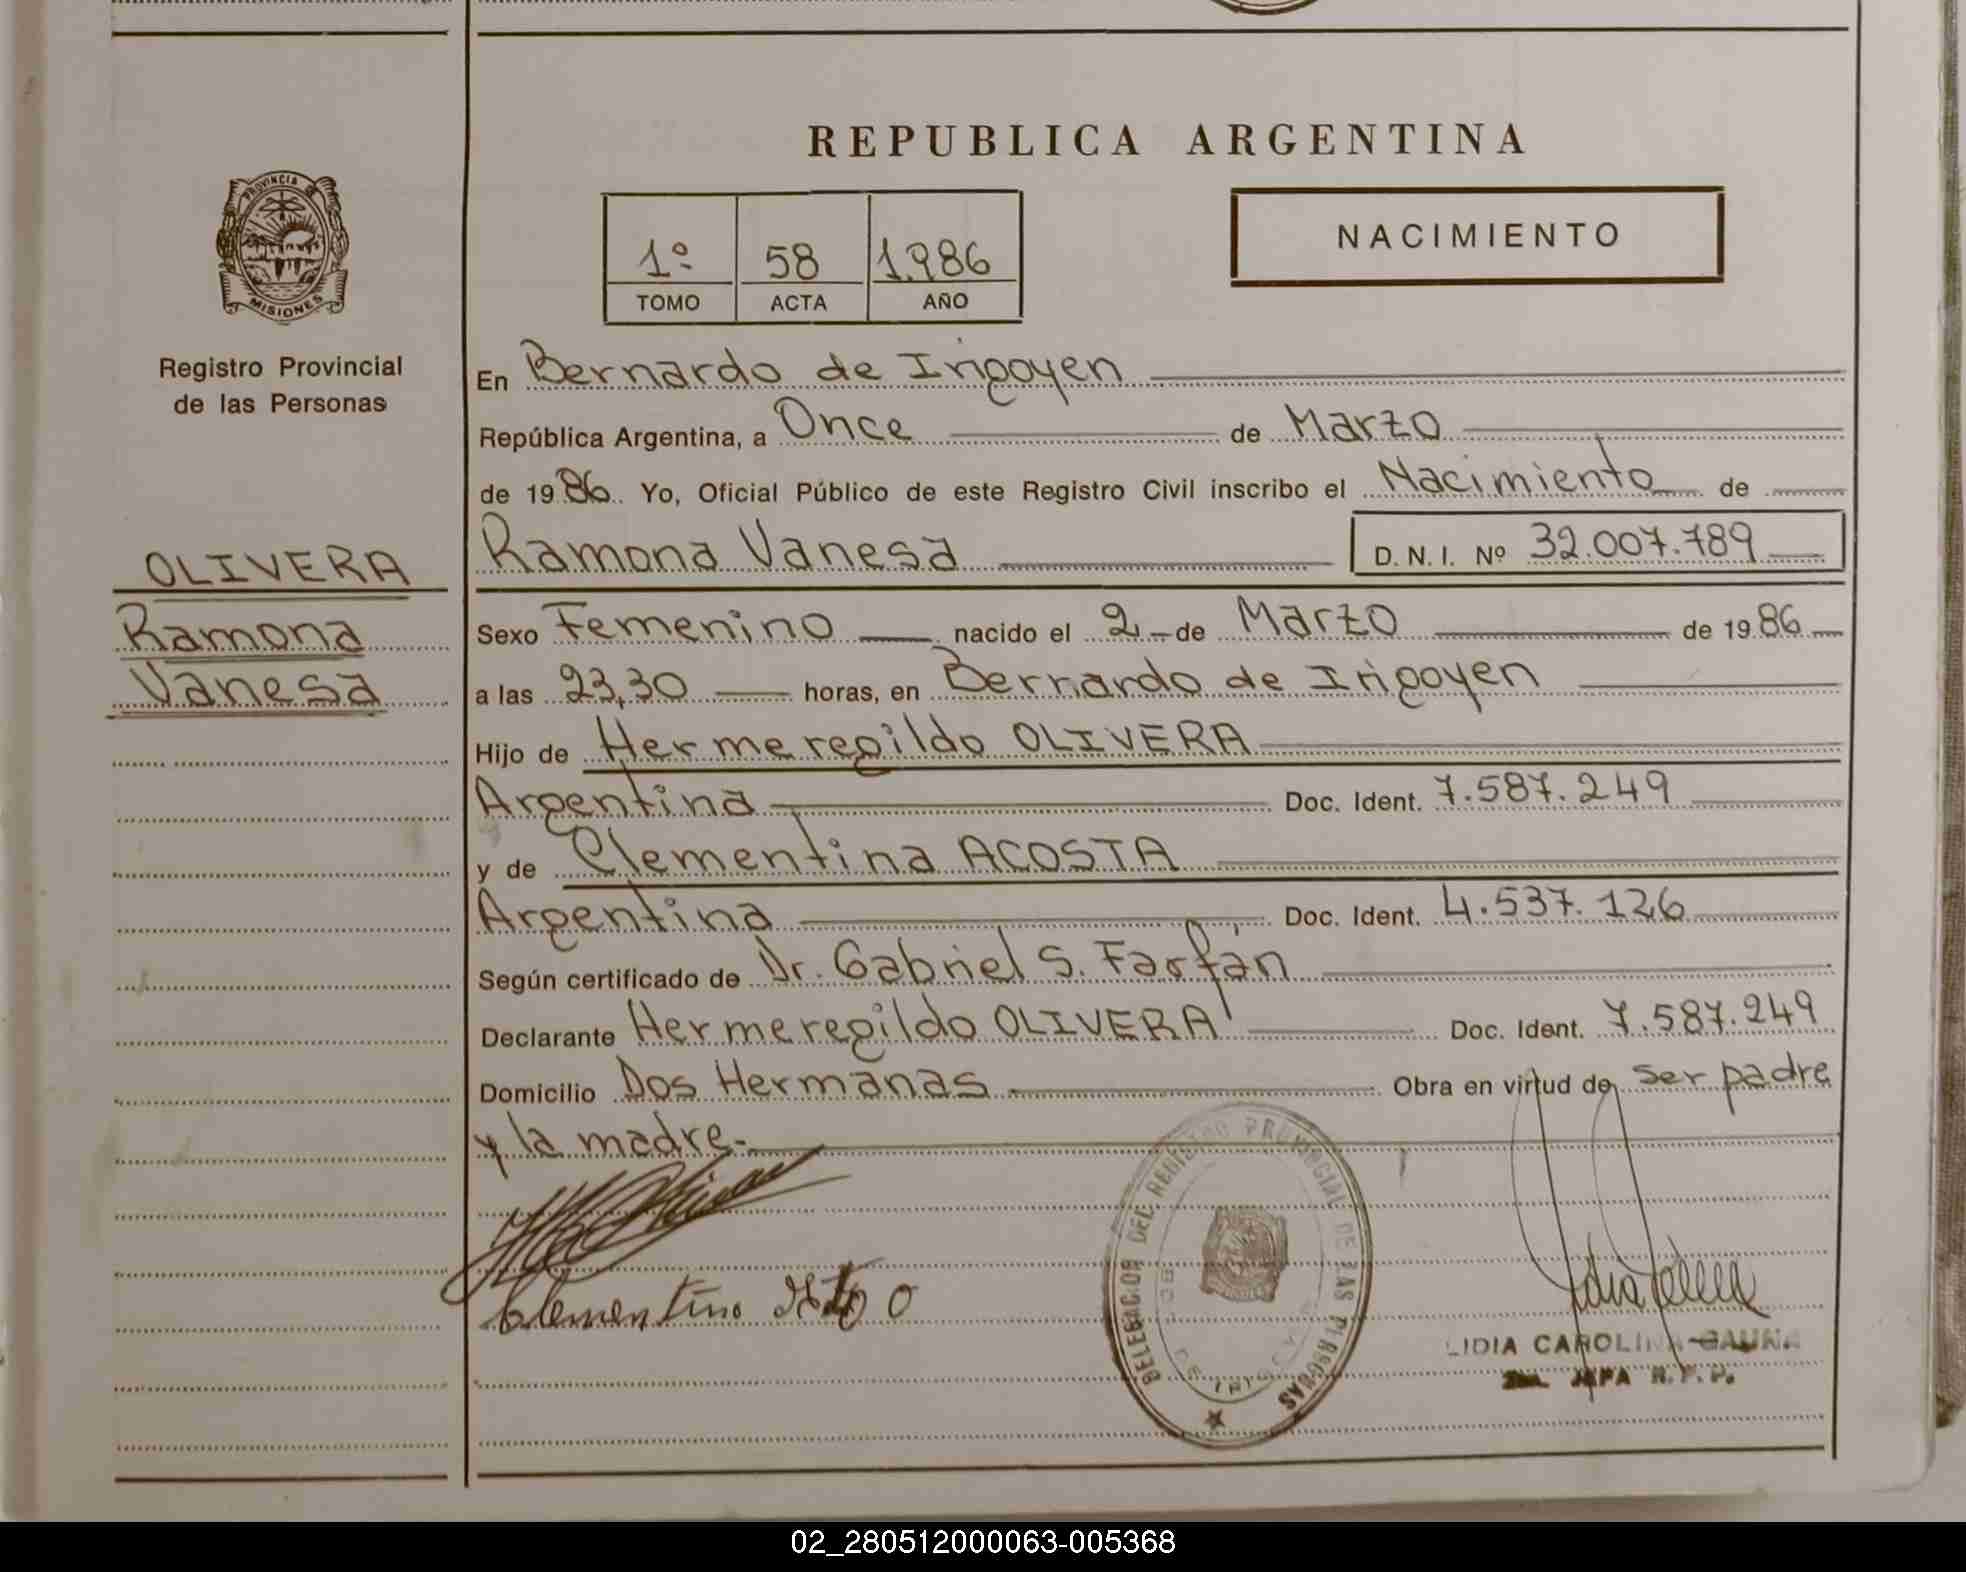 REPUBLICA ARGENTINA
PROVINCIA DE
MISIONES
Registro Provincial
de las Personas
1º 58 1.986
TOMO ACTA AÑO
NACIMIENTO
En Bernardo de Irigoyen
República Argentina, a Once de Marzo
de 1986 Yo, Oficial Público de este Registro Civil inscribo el Nacimiento de
Ramona Vanesa D. N. I. Nº 32.007.789
OLIVERA
Ramona
Vanesa
Sexo Femenino nacido el 2 de Marzo de 1986
a las 23,30 horas, en Bernardo de Irigoyen
Hijo de Hermeregildo OLIVERA
Argentina Doc. Ident. 7.587.249
y de Clementina ACOSTA
Argentina Doc. Ident. 4.537.126
Según certificado de Dr. Gabriel S. Farfán
Declarante Hermeregildo OLIVERA Doc. Ident. 7.587.249
Domicilio Dos Hermanas Obra en virtud de ser padre
y la madre.-
DELEGACION DEL REGISTRO PROVINCIAL DE LAS PERSONAS
LIDIA CAROLINA GAUNA
JEFA R.P.P.
02_280512000063-005368